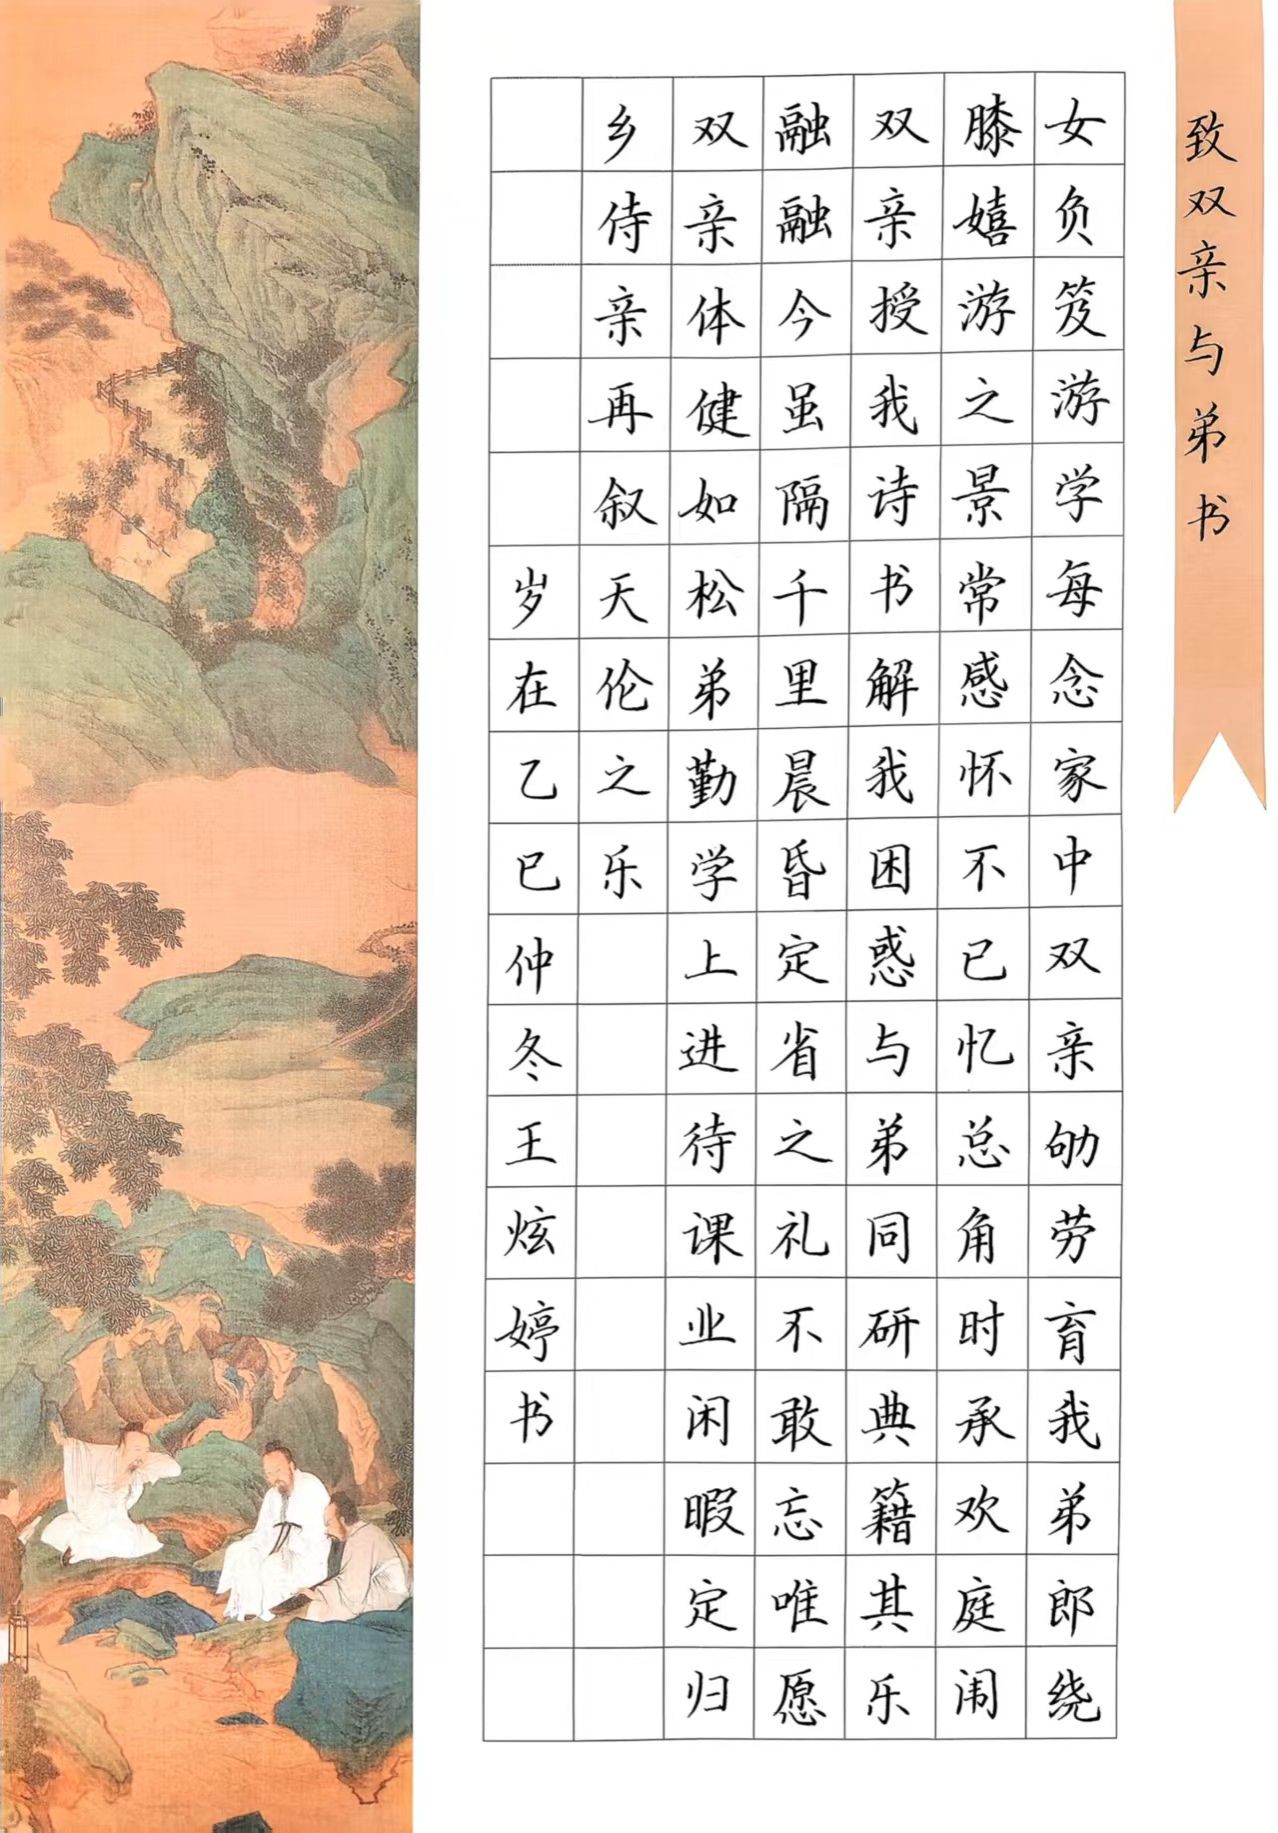 致双亲与弟书
女负笈游学每念家中双亲劬劳育我弟郎绕
膝嬉游之景常感怀不已忆总角时承欢庭闱
双亲授我诗书解我困惑与弟同研典籍其乐
融融今虽隔千里晨昏定省之礼不敢忘唯愿
双亲体健如松弟勤学上进待课业闲暇定归
乡侍亲再叙天伦之乐
岁在乙巳仲冬王炫婷书